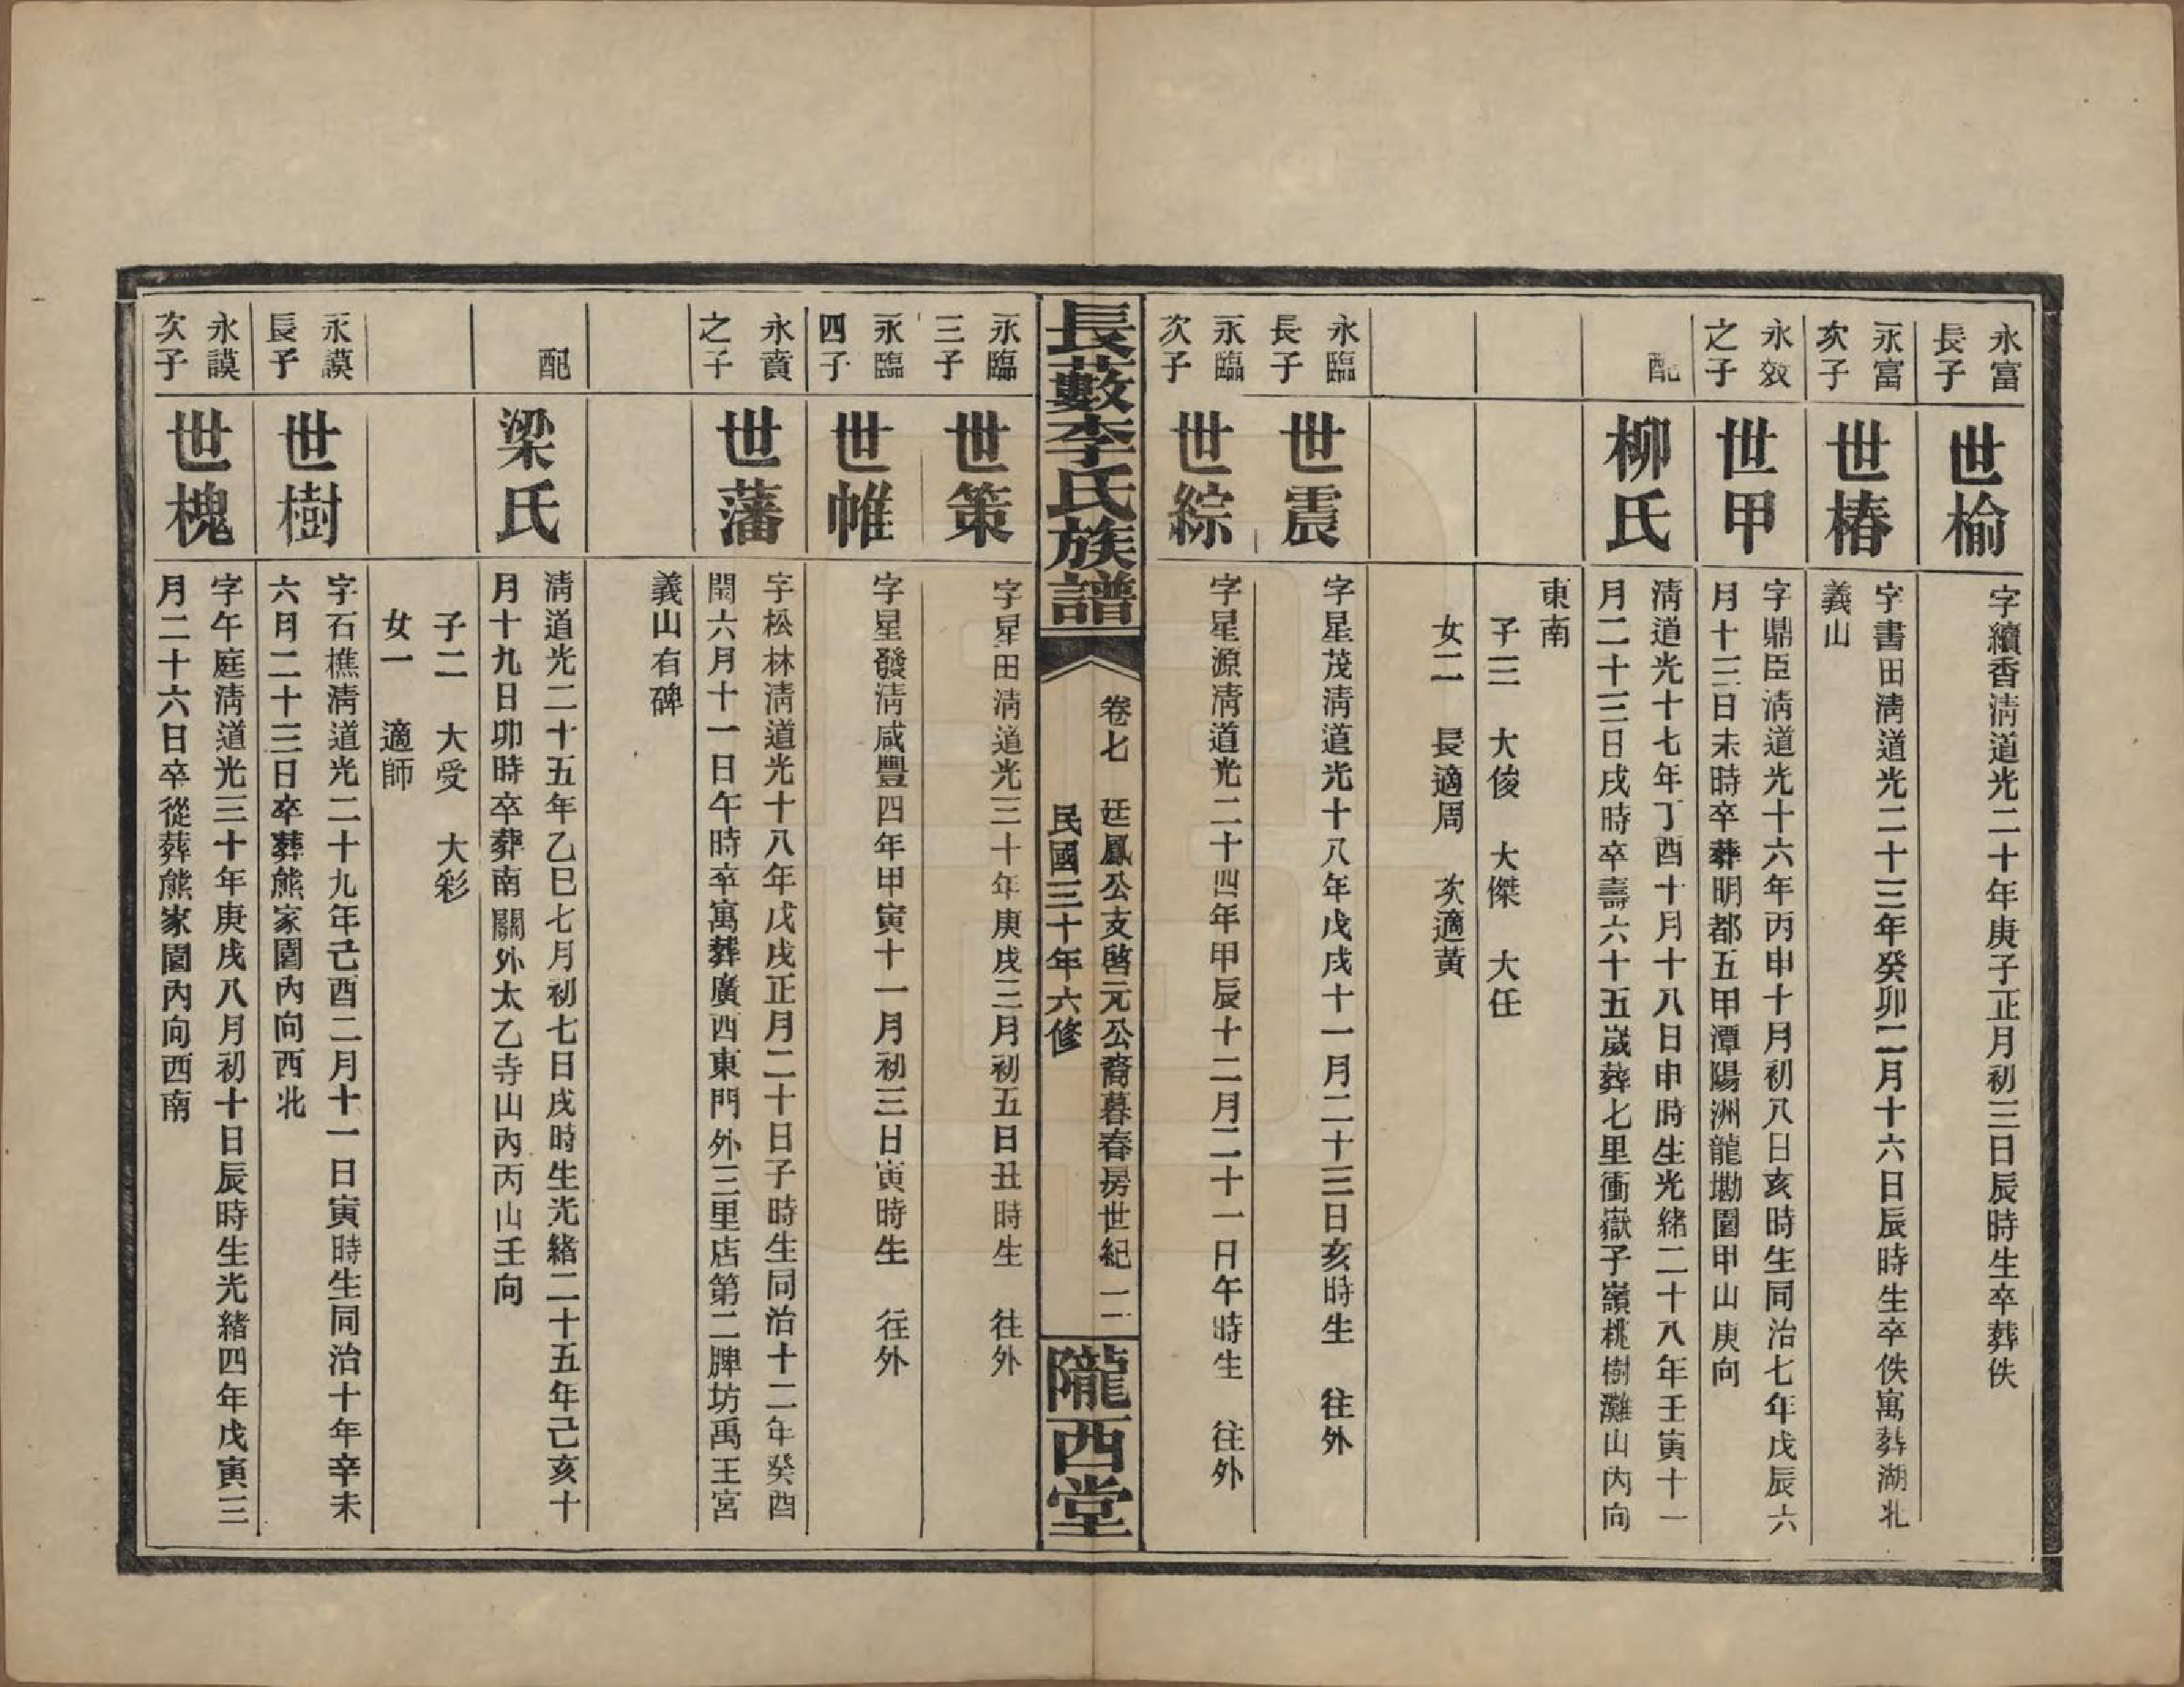 永富
長子
世榆
字纘香淸道光二十年庚子正月初三日辰時生卒葬佚
永富
次子
世椿
字書田淸道光二十三年癸卯二月十六日辰時生卒佚寓葬湖北
義山
永效
之子
世甲
字鼎臣淸道光十六年丙申十月初八日亥時生同治七年戊辰六
月十三日未時卒葬明都五甲潭陽洲龍墈園甲山庚向
配
柳氏
淸道光十七年丁酉十月十八日申時生光緒二十八年壬寅十一
月二十三日戌時卒壽六十五歲葬七里衝嶽子嶺桃樹灘山內向
東南
子三 大俊 大傑 大任
女二 長適周 次適黃
永臨
長子
世震
字星茂淸道光十八年戊戌十一月二十三日亥時生 往外
永臨
次子
世綜
字星源淸道光二十四年甲辰十二月二十一日午時生 往外
長藪李氏族譜
卷七 廷鳳公支啓元公裔暮春房世紀 二
民國三十年六修
隴西堂
永臨
三子
世策
字星田淸道光三十年庚戌三月初五日丑時生 往外
永臨
四子
世帷
字星發淸咸豐四年甲寅十一月初三日寅時生 往外
永賁
之子
世藩
字松林淸道光十八年戊戌正月二十日子時生同治十二年癸酉
閏六月十一日午時卒寓葬廣西東門外三里店第二牌坊禹王宮
義山有碑
配
梁氏
淸道光二十五年乙巳七月初七日戌時生光緒二十五年己亥十
月十九日卯時卒葬南關外太乙寺山內丙山壬向
子二 大受 大彩
女一 適師
永謨
長子
世樹
字石樵淸道光二十九年己酉二月十一日寅時生同治十年辛未
六月二十三日卒葬熊家園內向西北
永謨
次子
世槐
字午庭淸道光三十年庚戌八月初十日辰時生光緒四年戊寅三
月二十六日卒從葬熊家園內向西南